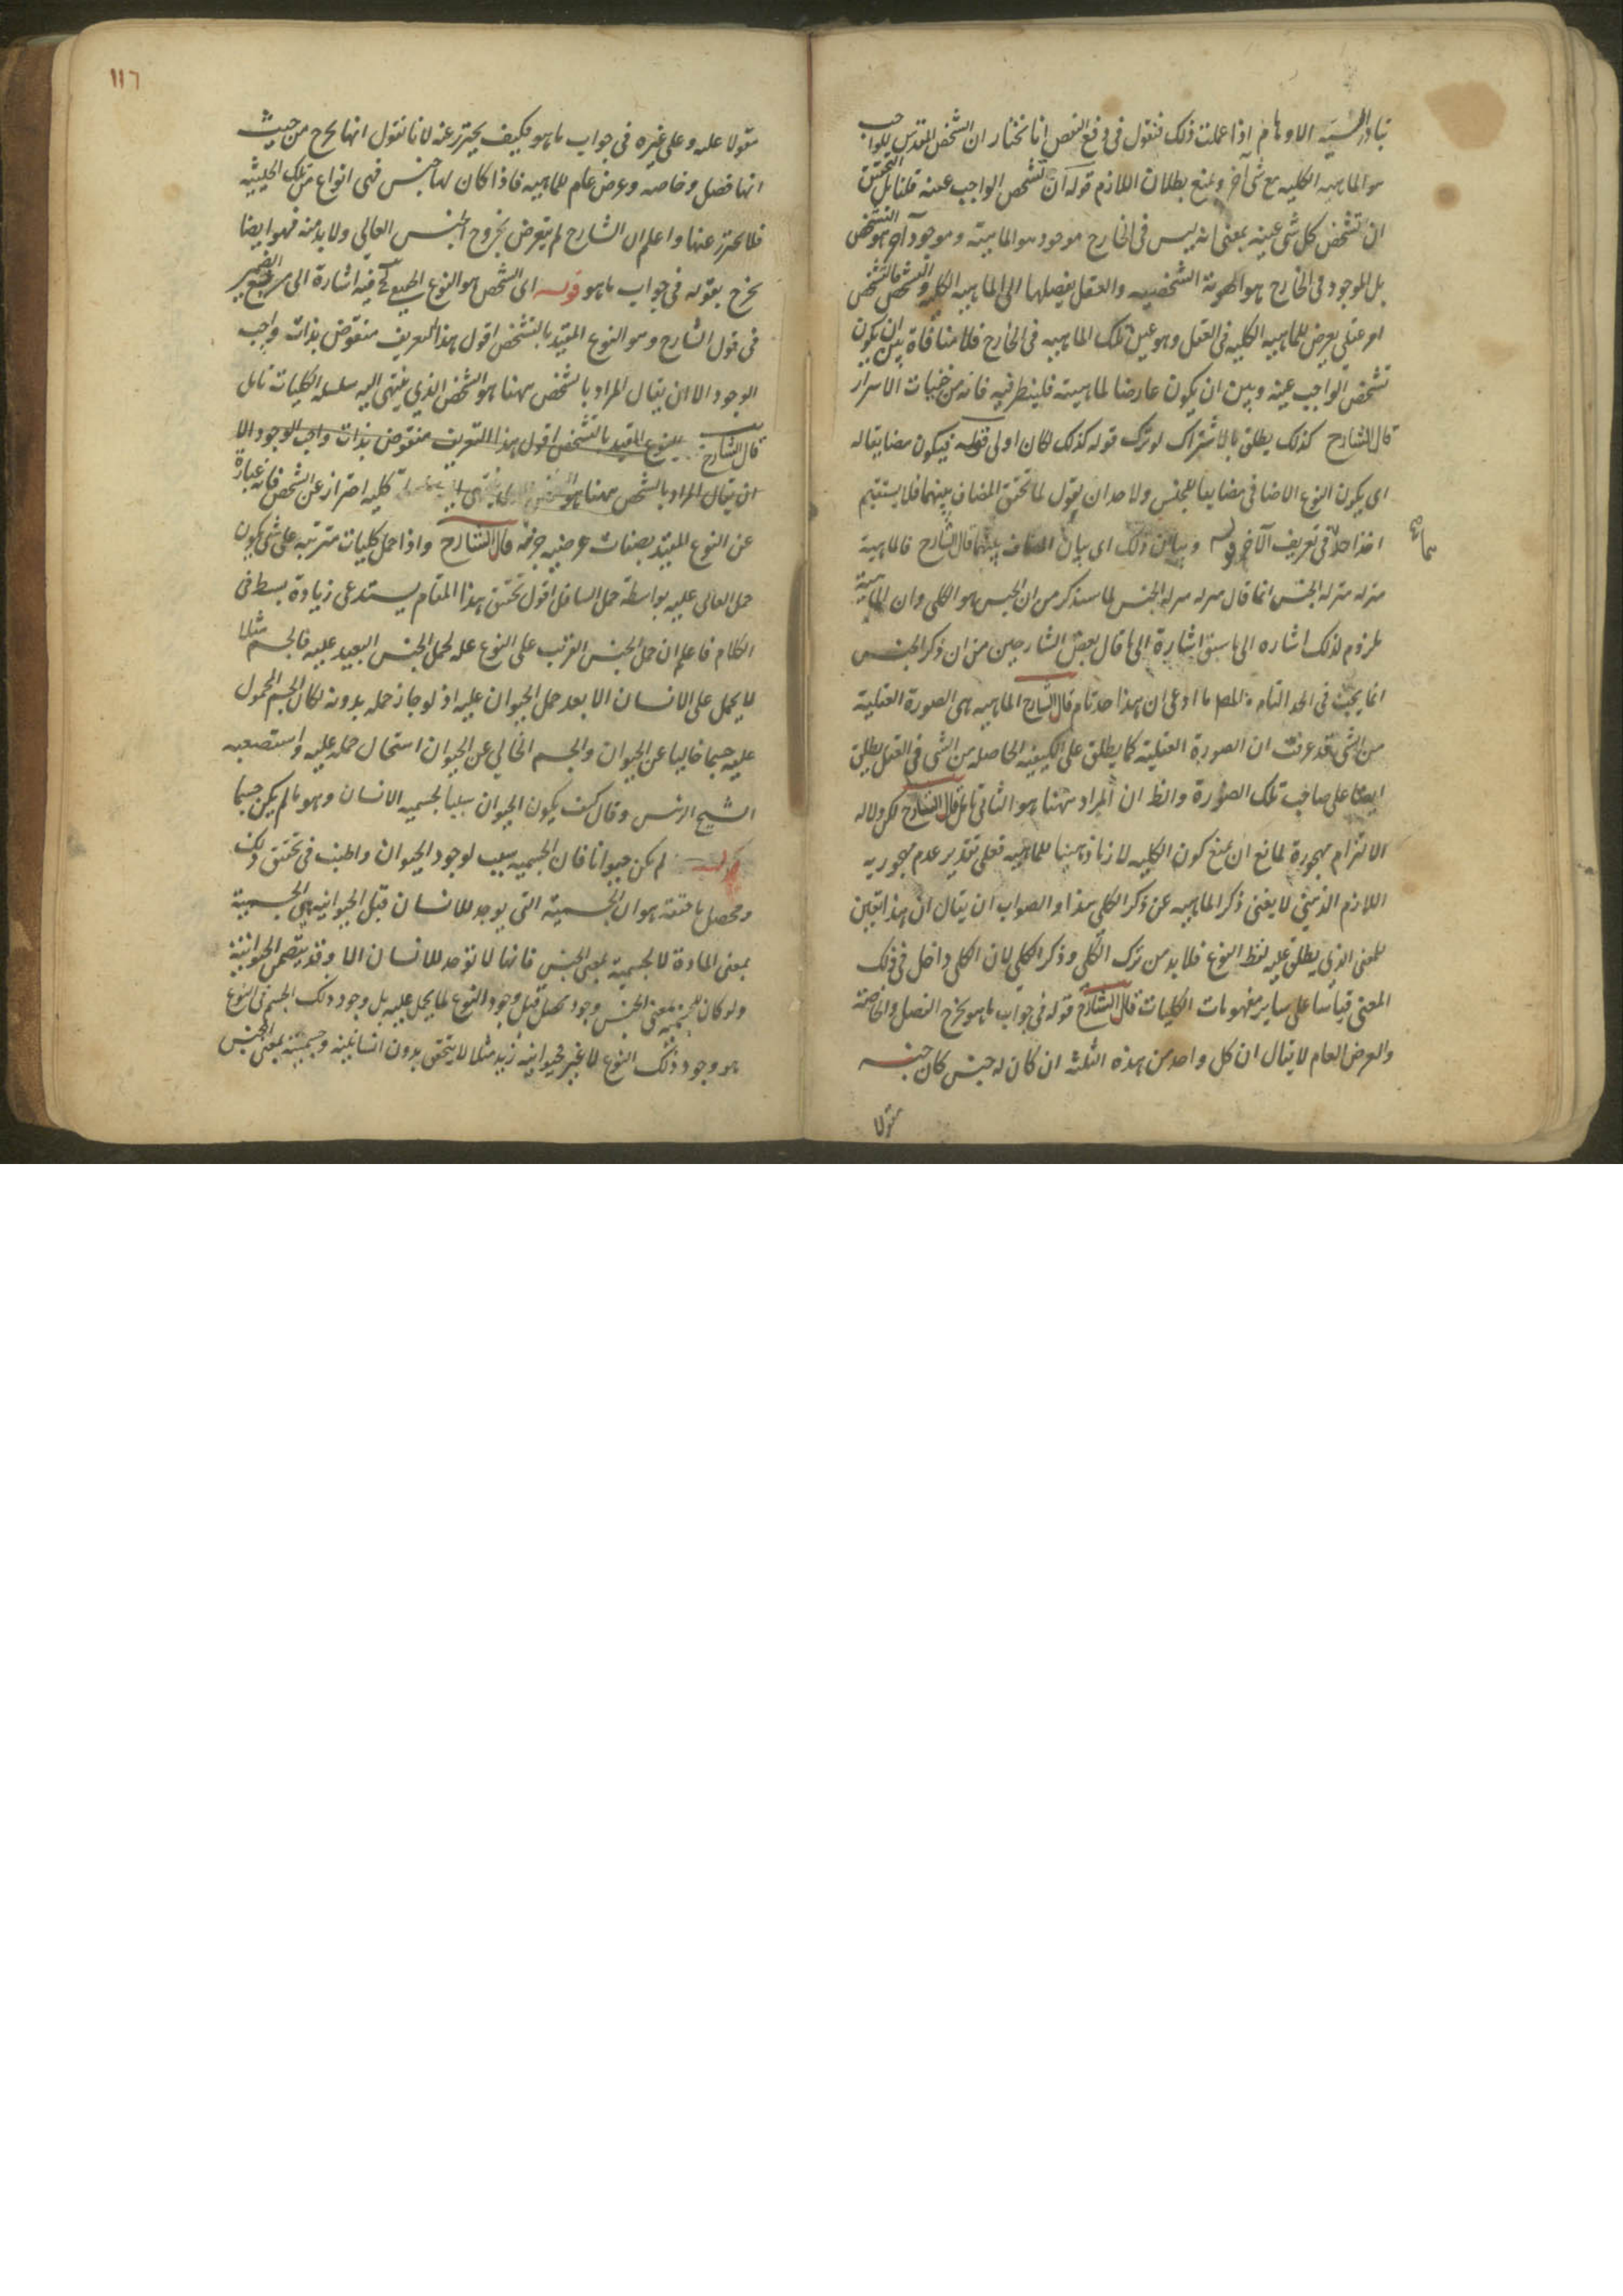 تبادر اليه الاوهام اذا علمت ذلك فنقول فى دفع النقض انا نختار ان الشخص المقدس للواجب
هو الماهية الكلية مع شى آخر ونمنع بطلان اللازم قوله ان تشخص الواجب عينه قلنا بل التحقيق
ان تشخص كل شى عينه بمعنى انه ليس فى الخارج موجود هو الماهية وموجود آخر هو التشخص
بل الموجود فى الخارج هو الهوية الشخصية والعقل يفصلها الى الماهية الكلية والتشخص فالتشخص
امر عقلى يعرض للماهية الكلية فى العقل وهو عين تلك الماهية فى الخارج فلا منافاة بين ان يكون
تشخص الواجب عينه وبين ان يكون عارضا لماهيته فلينظر فيه فانه من خفيات الاسرار
قال الشارح كذلك يطلق بالاشتراك لو ترك قوله كذلك لكان اولى فيكون مضايفا له
اى يكون النوع الاضافى مضايفا للجنس ولاحد ان يقول لما تحقق المضاف بينهما فلا يستقيم
اخذ احد فى تعريف الآخر قوله وبيان ذلك اى بيان المضاف بينهما قال الشارح فالماهية
منزلة منزلة الجنس انما قال منزلة منزلة الجنس لما سنذكر من ان الجنس هو الكلى وان الماهية
ملزوم لذلك اشارة الى ما سبق اشارة الى ما قال بعض الشارحين من ان ذكر الجنس
انما يجب فى الحد التام والمصـ ما ادعى ان هذا حد تام قال الشارح الماهية هى الصورة العقلية
من الشى قد عرفت ان الصورة العقلية كما يطلق على الكيفية الحاصلة من الشى فى العقل يطلق
ايضا على صاحب تلك الصورة والظ ان المراد ههنا هو الثانى تامل قال الشارح لكن دلالة
الالتزام مهجورة لمانع ان يمنع كون الكلية لازما ذهنيا للماهية فعلى تقدير عدم مهجورية
اللازم الذهنى لا يغنى ذكر الماهية عن ذكر الكلى هذا والصواب ان يقال ان هذا تعيين
للمعنى الذى يطلق عليه لفظ النوع فلا بد من ترك الكلى وذكر الكلى لان الكلى داخل فى ذلك
المعنى قياسا على ساير مفهومات الكليات قال الشارح قوله فى جواب ما هو يخرج الفصل والخاصة
والعرض العام لا يقال ان كل واحد من هذه الثلثة ان كان له جنس كان جنسه
مقولا
١١٦
مقولا عليه وعلى غيره فى جواب ما هو فكيف يحترز عنه لانا نقول انها يخرج من حيث
انها فصل وخاصة وعرض عام للماهية فاذا كان لها جنس فهى انواع من تلك الحيثية
فلا يحترز عنها واعلم ان الشارح لم يتعرض بخروج الجنس العالى ولا بد منه فهو ايضا
يخرج بقوله فى جواب ما هو قوله اى الشخص هو النوع فيه اشارة الى مرجع الضمير
فى قول الشارح وهو النوع المقيد بالتشخص اقول هذا التعريف منقوض بذات واجب
الوجود الا ان يقال المراد بالشخص ههنا هو الشخص الذى ينتهى اليه سلسلة الكليات تامل
قال الشارح النوع المقيد بالتشخص اقول هذا التعريف منقوض بذات واجب الوجود الا
ان يقال المراد بالشخص ههنا هو كلية احتراز عن الشخص فانه عبارة
عن النوع المقيد بصفات عرضية جزئية قال الشارح واذا حمل كليات مترتبة على شى يكون
حمل العالى عليه بواسطة حمل السافل اقول تحقيق هذا المقام يستدعى زيادة بسط فى
الكلام فاعلم ان حمل الجنس القريب على النوع علة لحمل الجنس البعيد عليه فالجسم مثلا
لا يحمل على الانسان الا بعد حمل الحيوان عليه اذ لو جاز حمله بدونه لكان الجسم المحمول
عليه جسما خاليا عن الحيوان والجسم الخالى عن الحيوان استحال حمله عليه واستصعبه
الشيخ الرئيس وقال كيف يكون الحيوان سببا لجسمية الانسان وهو ما لم يكن جسما
لم يكن حيوانا فان الجسمية سبب لوجود الحيوان واطنب فى تحقيق ذلك
ومحصل ما حققه هو ان الجسمية التى يوجد للانسان قبل الحيوانية هى الجسمية
بمعنى المادة لا الجسمية بمعنى الجنس فانها لا توجد للانسان الا وقد يتضمن الحيوانية
ولو كان للجسمية بمعنى الجنس وجود محصل قبل وجود النوع لما يحمل عليه بل وجود ذلك الجسم فى النوع
هو وجود ذلك النوع لا غير فحيوانية زيد مثلا لا يتحقق بدون انسانيته وجسميته بمعنى الجنس